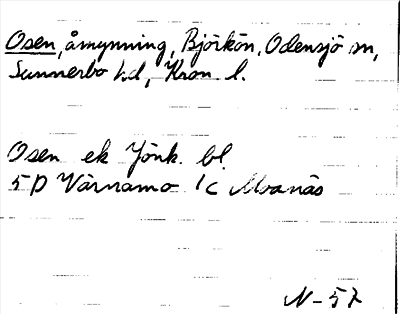 Osen, åmynning, Björkön, Odensjö sn,
Sunnerbo hd, Kron. l.
Osen ek Jönk. bl.
5D Värnamo 1c Moanäs
N-57